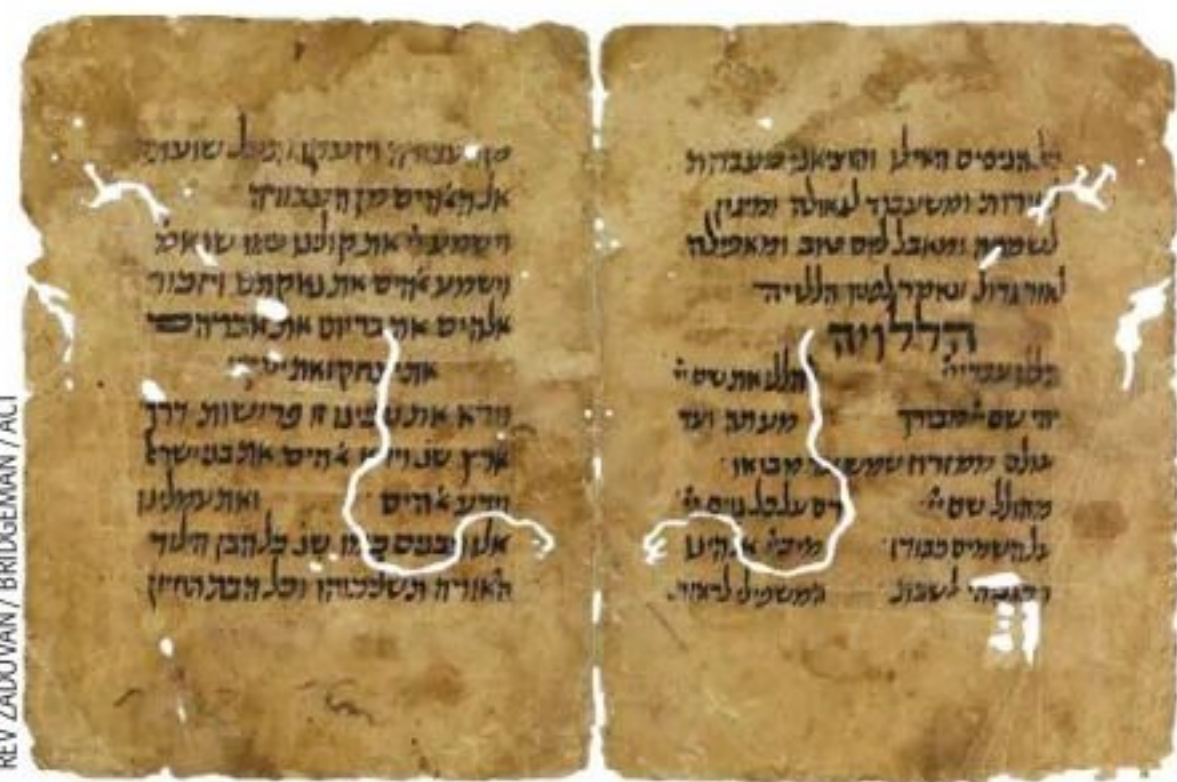 הניסים האילו והוציאנו מעבדות
ומשעבוד לגאולה ומיגון
לשמחה ומאבל ליום טוב ומאפילה
לאור גדול ונאמר לפניו הללויה
הללויה
הללו עבדי יי הללו את שם יי
יהי שם יי מבורך מעתה ועד
עולם ממזרח שמש מבואו
מהולל שם יי רם על כל גוים יי
על השמים כבודו אלהינו
לשבת המשפילי לראות
מן העבודה ויזעקו ותעל שועתם
אל האלהים מן העבודה
וישמע יי את קולנו כמו שנאמ
וישמע אלהים את נאקתם ויזכור
אלהים את בריתו את אברהם
את יצחק ואת
וירא את ענינו זו פרישות דרך
ארץ שנ וירא אלהים את בני ישראל
וידע אלהים ואת עמלינו
אלו הבנים כמו שנ כל הבן הילוד
היאורה תשליכוהו וכל הבת תחיון
REV ZADOVAN / BRIDGEMAN / ACI